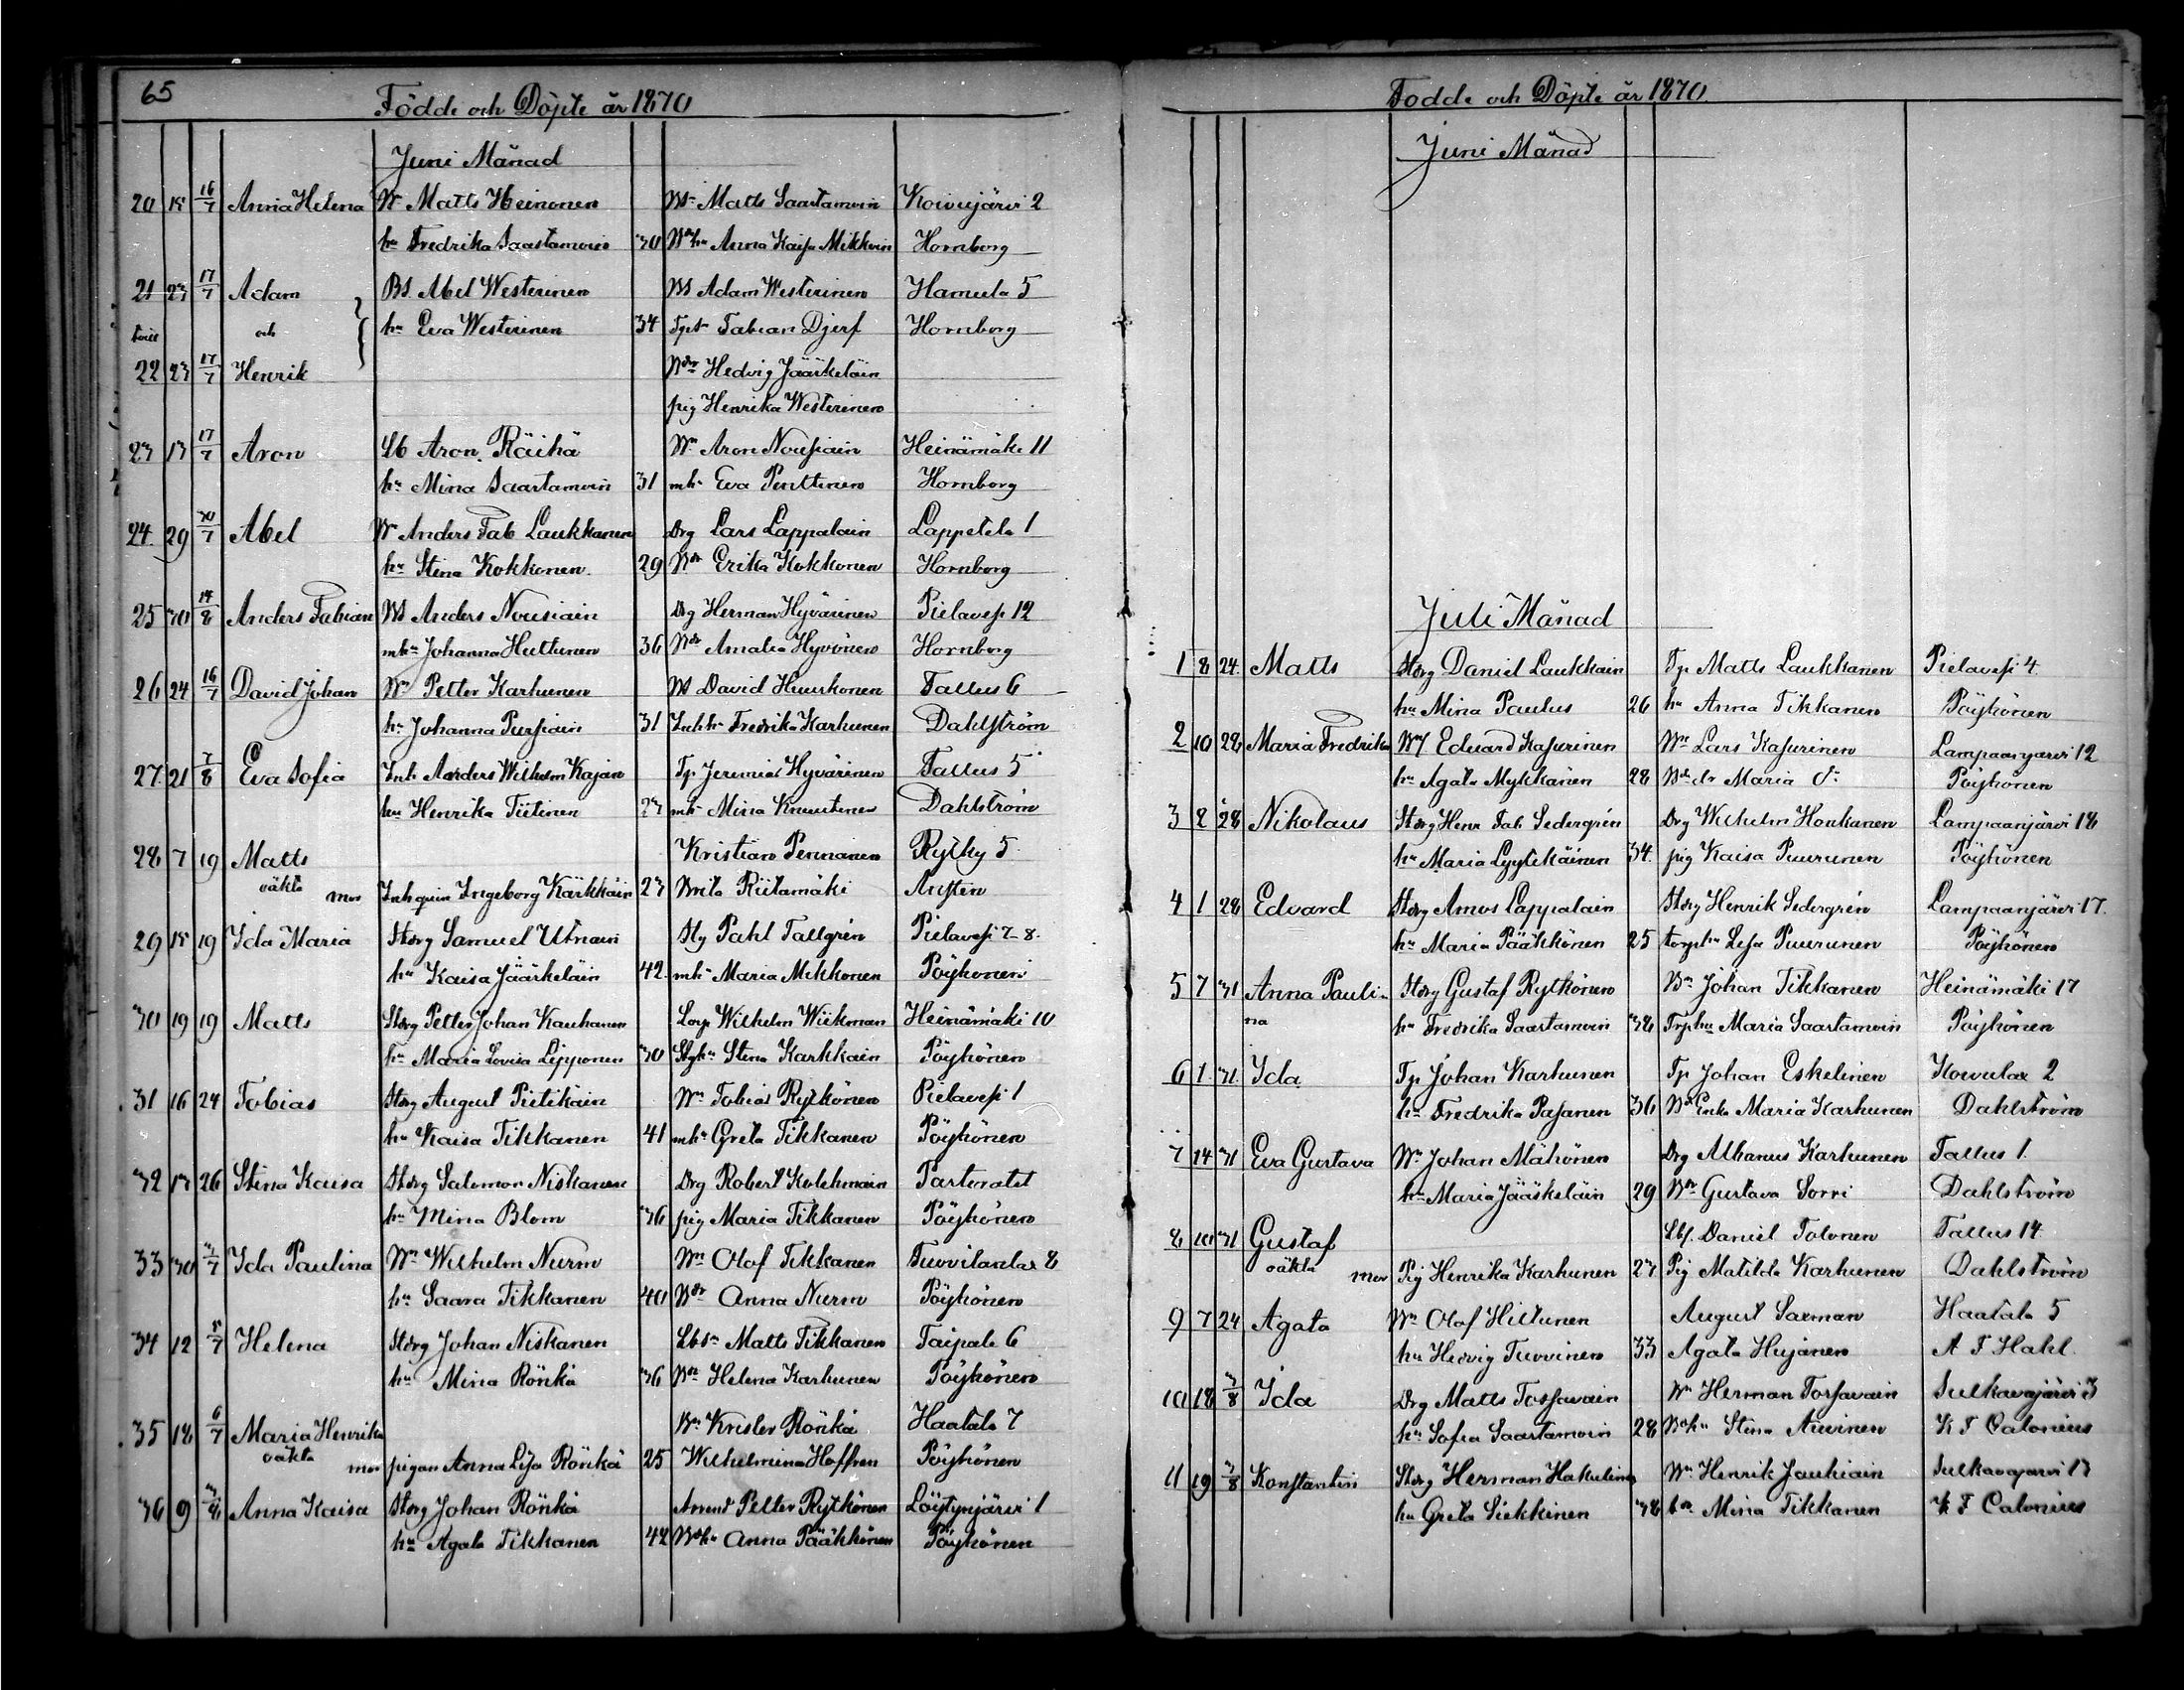 65
Födde och Döpte år 1870
Juni Månad
20 15 16/7 Anna Helena Wn Matts Heinonen Bn Matts Saastamoin Koivujärvi 2
hu Fredrika Saastamoin 30 Bdhu Anna Kaisa Mikkoin Hornborg
21 23 17/7 Adam Bs Abel Westerinen Bs Adam Westerinen Hamula 5
tvill och hu Eva Westerinen 34 Tpsn Fabian Djerf Hornborg
22 23 17/7 Henrik Bdr Hedvig Jääskeläin
pig Henrika Westerinen
23 13 17/7 Aron Lb Aron Räihä Wn Aron Nousiain Heinämäki 11
hu Mina Saastamoin 31 mhu Eva Penttinen Hornborg
24 29 30/7 Abel Wn Anders Fab Laukkanen Drg Lars Lappalain Lappetela 1
hu Stina Kokkonen 29 Bdr Erika Kokkonen Hornborg
25 30 14/8 Anders Fabian Bs Anders Nousiain Drg Herman Hyvärinen Pielavesi 12
mhu Johanna Huttunen 36 Bdr Amalia Hyvönen Hornborg
26 24 16/7 David Johan Wn Petter Karhunen Bs David Huuskonen Tallus 6
hu Johanna Pursiain 31 Inhhu Fredrika Karhunen Dahlström
27 21 7/8 Eva Sofia Inh Anders Wilhelm Kajan Tp Jeremias Hyvärinen Tallus 5
hu Henrika Tiitinen 23 mhu Mina Knuutinen Dahlström
28 7 19 Matts Kristian Pennanen Rytky 5
oäkta mor Inhqvin Ingeborg Kärkkäin 23 Brita Riitamäki Austen
29 15 19 Ida Maria Storg Samuel Utriain Sty Pahl Tallgrén Pielavesi 7-8.
hu Kaisa Jääskeläin 42 mhu Maria Mikkonen Pöyhönen
30 19 19 Matts Storg Petter Johan Kauhanen Lorp Wilhelm Wiikman Heinämäki 10
hu Maria Lovisa Lipponen 30 Styhu Stina Karkkain Pöyhönen
31 16 24 Tobias Storg August Pietikäin Wn Tobias Rytkönen Pielavesi 1
hu Kaisa Tikkanen 41 mhu Greta Tikkanen Pöyhönen
32 13 26 Stina Kaisa Storg Salomon Niskanen Drg Robert Kolehmain Partaratet
hu Mina Blom 36 pig Maria Tikkanen Pöyhönen
33 30 3/7 Ida Paulina Wn Wilhelm Nurm Wn Olof Tikkanen Tuovilanlax 8
hu Saara Tikkanen 40 Bdr Anna Nurm Pöyhönen
34 12 5/7 Helena Storg Johan Niskanen Lbsn Matts Tikkanen Taipale 6
hu Mina Rönkä 36 Bdr Helena Karhunen Pöyhönen
35 18 6/7 Maria Henrika Bn Krister Rönkä Haatala 7
oäkta mor pigan Anna Lisa Rönkä 25 Wilhelmina Hoffren Pöyhönen
36 9 Anna Kaisa Storg Johan Rönkä Arrend Petter Rytkönen Löytynjärvi 1
hu Agata Tikkanen 42 Bdhu Anna Pääkkönen Pöyhönen
Födde och Döpte år 1870.
Juni Månad
Juli Månad
1 8 24 Matts Storg Daniel Laukkain Tp Matts Laukkanen Pielavesi 4
hu Mina Paulus 26 hu Anna Tikkanen Pöyhönen
2 10 28 Maria Fredrika Bn Eduard Kasurinen Wn Lars Kasurinen Lampaanjärvi 12
hu Agata Mykkänen 28 Bdr Maria Pöyhönen
3 2 28 Nikolaus Storg Henr Fab Sedergrén Drg Wilhelm Honkanen Lampaanjärvi 18
hu Maria Lyytikäinen 34 pig Kaisa Puurunen Pöyhönen
4 1 28 Edvard Storg Amos Lappalain Storg Henrik Sedergrén Lampaanjärvi 17.
hu Maria Pääkkönen 25 torphu Lisa Puurunen Pöyhönen
5 7 31 Anna Pauli- Storg Gustaf Rytkönen Bn Johan Tikkanen Heinämäki 17
na hu Fredrika Saastamoin 38 Trphu Maria Saastamoin Pöyhönen
6 1 31 Ida Tp Johan Karhunen Tp Johan Eskelinen Koivulax 2
hu Fredrika Pasanen 36 Bd Enka Maria Karhunen Dahlström
7 14 31 Eva Gustava Wn Johan Mähönen Drg Albanus Karhunen Tallus 1
hu Maria Jääskeläin 29 Bdr Gustava Sorri Dahlström
8 10 31 Gustaf Lbf. Daniel Tolonen Tallus 14
oäkta mor Pig Henrika Karhunen 23 Pig Matilda Karhunen Dahlström
9 7 24 Agata Wn Olof Hiltunen August Saxman Haatala 5
hu Hedvig Tuovinen 33 Agata Hujanen A F Hahl.
10 18 3/8 Ida Drg Matts Tossavain Wn Herman Tossavain Sulkavajärvi 3
hu Sofia Saastamoin 28 Bdhu Stina Auvinen K F Calonius
11 19 3/8 Konstantin Storg Herman Hakulinen Wn Henrik Jauhiain Sulkavajärvi 13
hu Greta Siekkinen 38 Mina Tikkanen K F Calonius